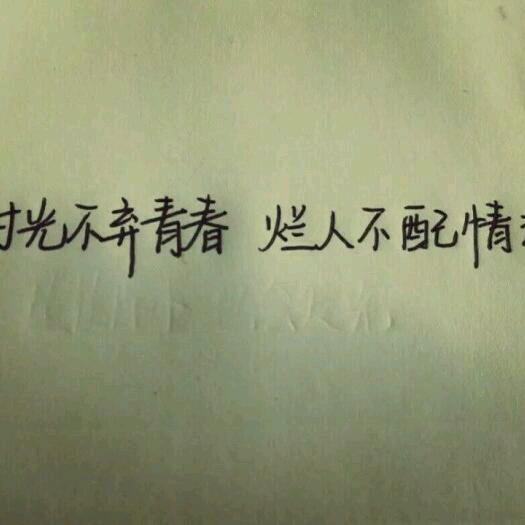 时光不弃青春 烂人不配情